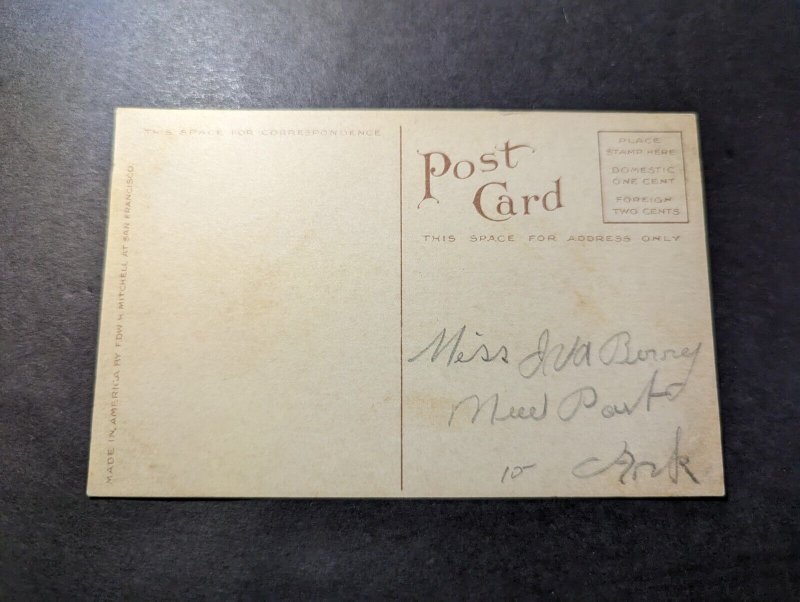 THIS SPACE FOR CORRESPONDENCE
MADE IN AMERICA BY EDW. H. MITCHELL AT SAN FRANCISCO.
Post
Card
PLACE
STAMP HERE
DOMESTIC
ONE CENT
FOREIGN
TWO CENTS
THIS SPACE FOR ADDRESS ONLY
Miss Iva Berry
New Port
10 Ark